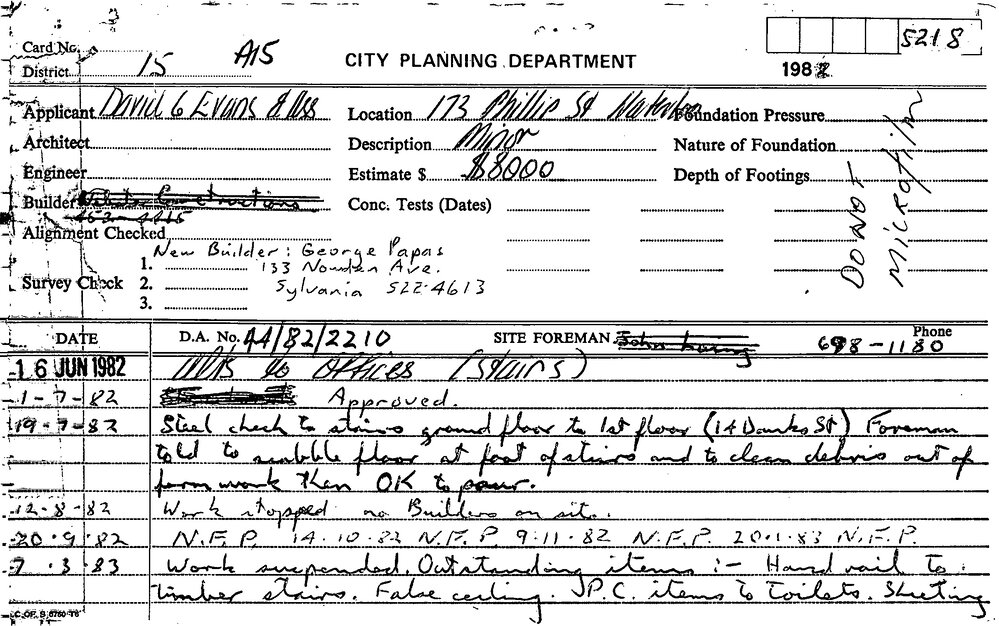 5218
Card No.
District 15 A15
CITY PLANNING DEPARTMENT
1982
Applicant David G Evans & Ass Location 173 Phillip St Waterloo Foundation Pressure
Architect Description Minor Nature of Foundation
Engineer Estimate $ $8000 Depth of Footings
Builder Constructions Conc. Tests (Dates)
Alignment Checked
DO NOT MICROFILM
New Builder: George Papas
1. 133 Nowden Ave.
Survey Check 2. Sylvania 522-4613
3.
DATE D.A. No. 44/82/2210 SITE FOREMAN John Phone 698-1180
16 JUN 1982 Alts to Offices (Stairs)
1-7-82 Approved.
19-7-82 Steel check to stairs ground floor to 1st floor (14 Danks St) Foreman
told to scabble floor at foot of stairs and to clean debris out of
form work then OK to pour.
12-8-82 Work stopped no Builders on site.
20.9.82 N.F.P. 14.10.82 N.F.P. 9.11.82 N.F.P. 20.1.83 N.F.P.
7.3.83 Work suspended. Outstanding items :- Hand rail to
timber stairs. False ceiling. P.C. items to toilets. Sheeting